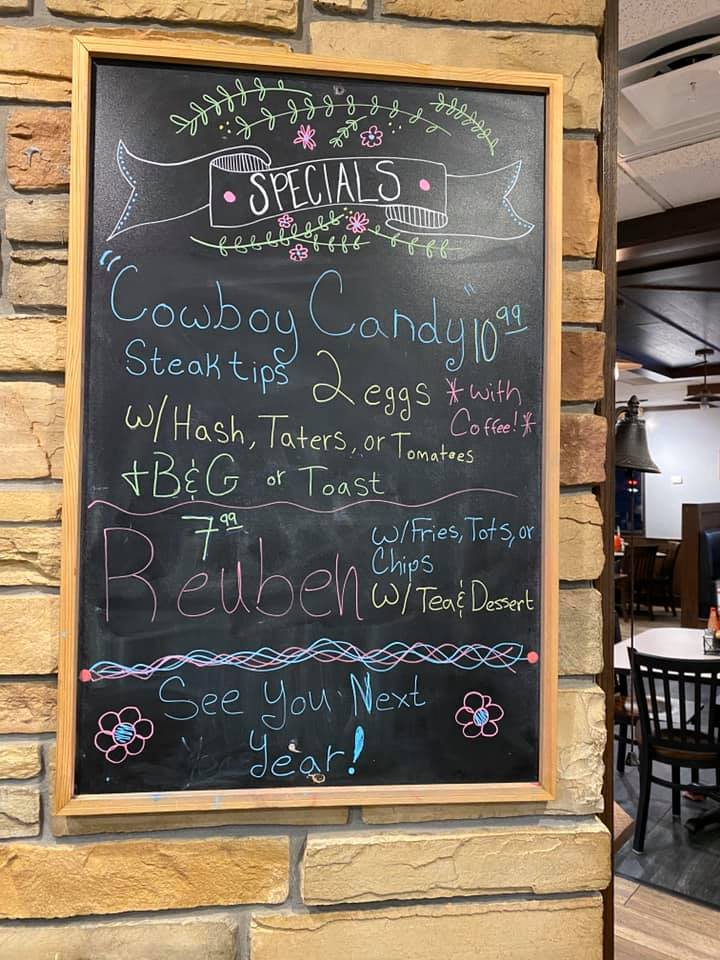 SPECIALS
"Cowboy Candy" 10.99
Steak tips 2 eggs *with Coffee!*
w/Hash, Taters, or Tomatoes
+B&G or Toast
7.99
Reuben w/Fries, Tots, or
Chips
w/Tea & Dessert
See You Next
Year!